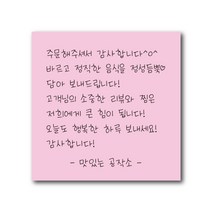 주문해주셔서 감사합니다^o^
바르고 정직한 음식을 정성듬뿍♡
담아 보내드립니다!
고객님의 소중한 리뷰와 찜은
저희에게 큰 힘이 됩니다!
오늘도 행복한 하루 보내세요!
감사합니다!
- 맛있는 공작소 -